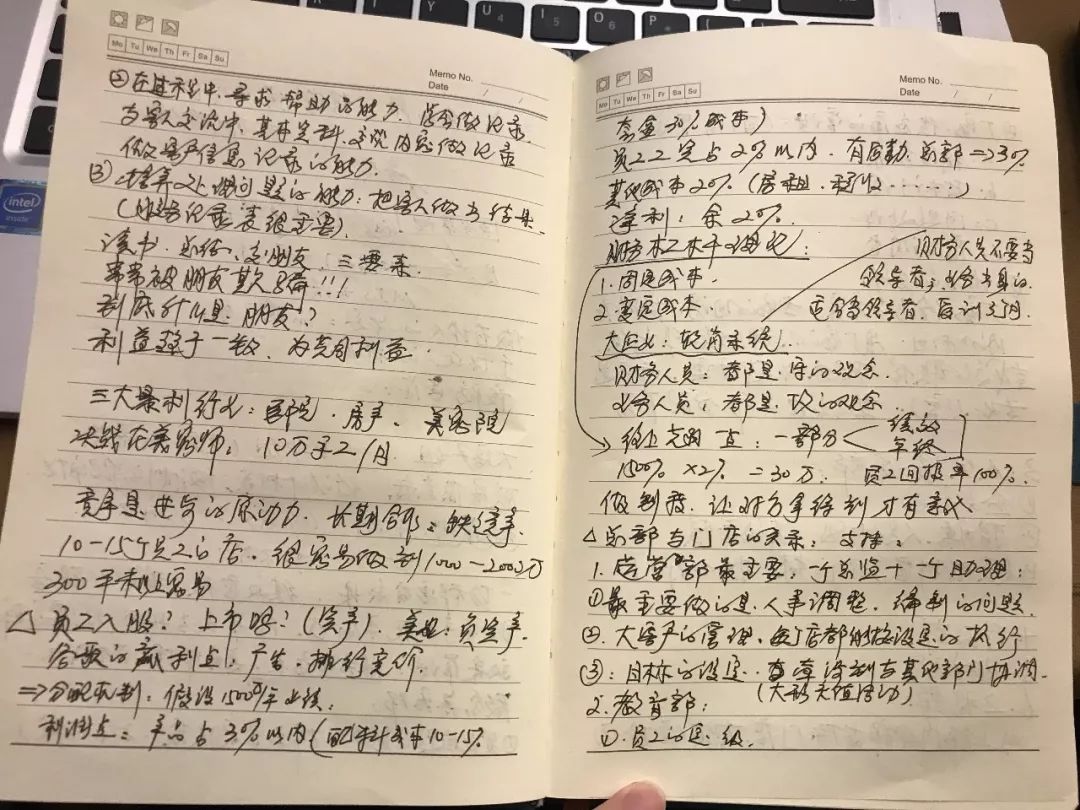 Memo No.
Date / /
Mo Tu We Th Fr Sa Su
②在过程中,寻求帮助的能力,
与客人交流中,基本资料,交谈内容做记录
做客户信息记录的能力.
③培养处理问题的能力:把客人做出结果.
(服务记录表很重要).
读书、总结、交朋友,三要素.
常常被朋友欺骗!!!
到底什么是朋友?
利益趋于一致,为共同利益.
三大暴利行业:医院、房产、美容院
决战在美容师:10万手工/月.
竞争是世界的原动力,长期合作:缺竞争.
10-15个员工的店,很容易做到1000-2000万
300平米以上容易
△员工入股?上市吗?(资产).美业:负资产.
谷歌的赢利点:广告、排行竞价
⇒分配机制:假设1500万/年业绩.
利润点:产品占30%以内(配料成本10-15%
Memo No.
Date / /
Mo Tu We Th Fr Sa Su
30%成本)
员工工资占30%以内.有后勤、总部⇒30%
其他成本20%(房租、税收……)
净利:余20%.
财务本工本千
1.固定成本.
财务人员不要当
领导者,业务出身的
2.变定成本
适合当领导者,培训3个月.
大企业:犄角系统.
财务人员:都是守的观念.
业务人员:都是攻的观念
一部分< 绩效
年终
1500万×2%=30万.员工回报率100%.
做制度,让对方拿得到才有意义
△总部与门店的关系:支持:
1.运营部最重要,一个总监+一个助理:
①最重要做的是人事调整,编制的问题.
②.大客户的管理,每个店都的执行
③:目标的设定..与其他部门协调.
(大型充值活动)
2.教育部:
①.员工的定级.
intel
inside
U I O P
4 5 6